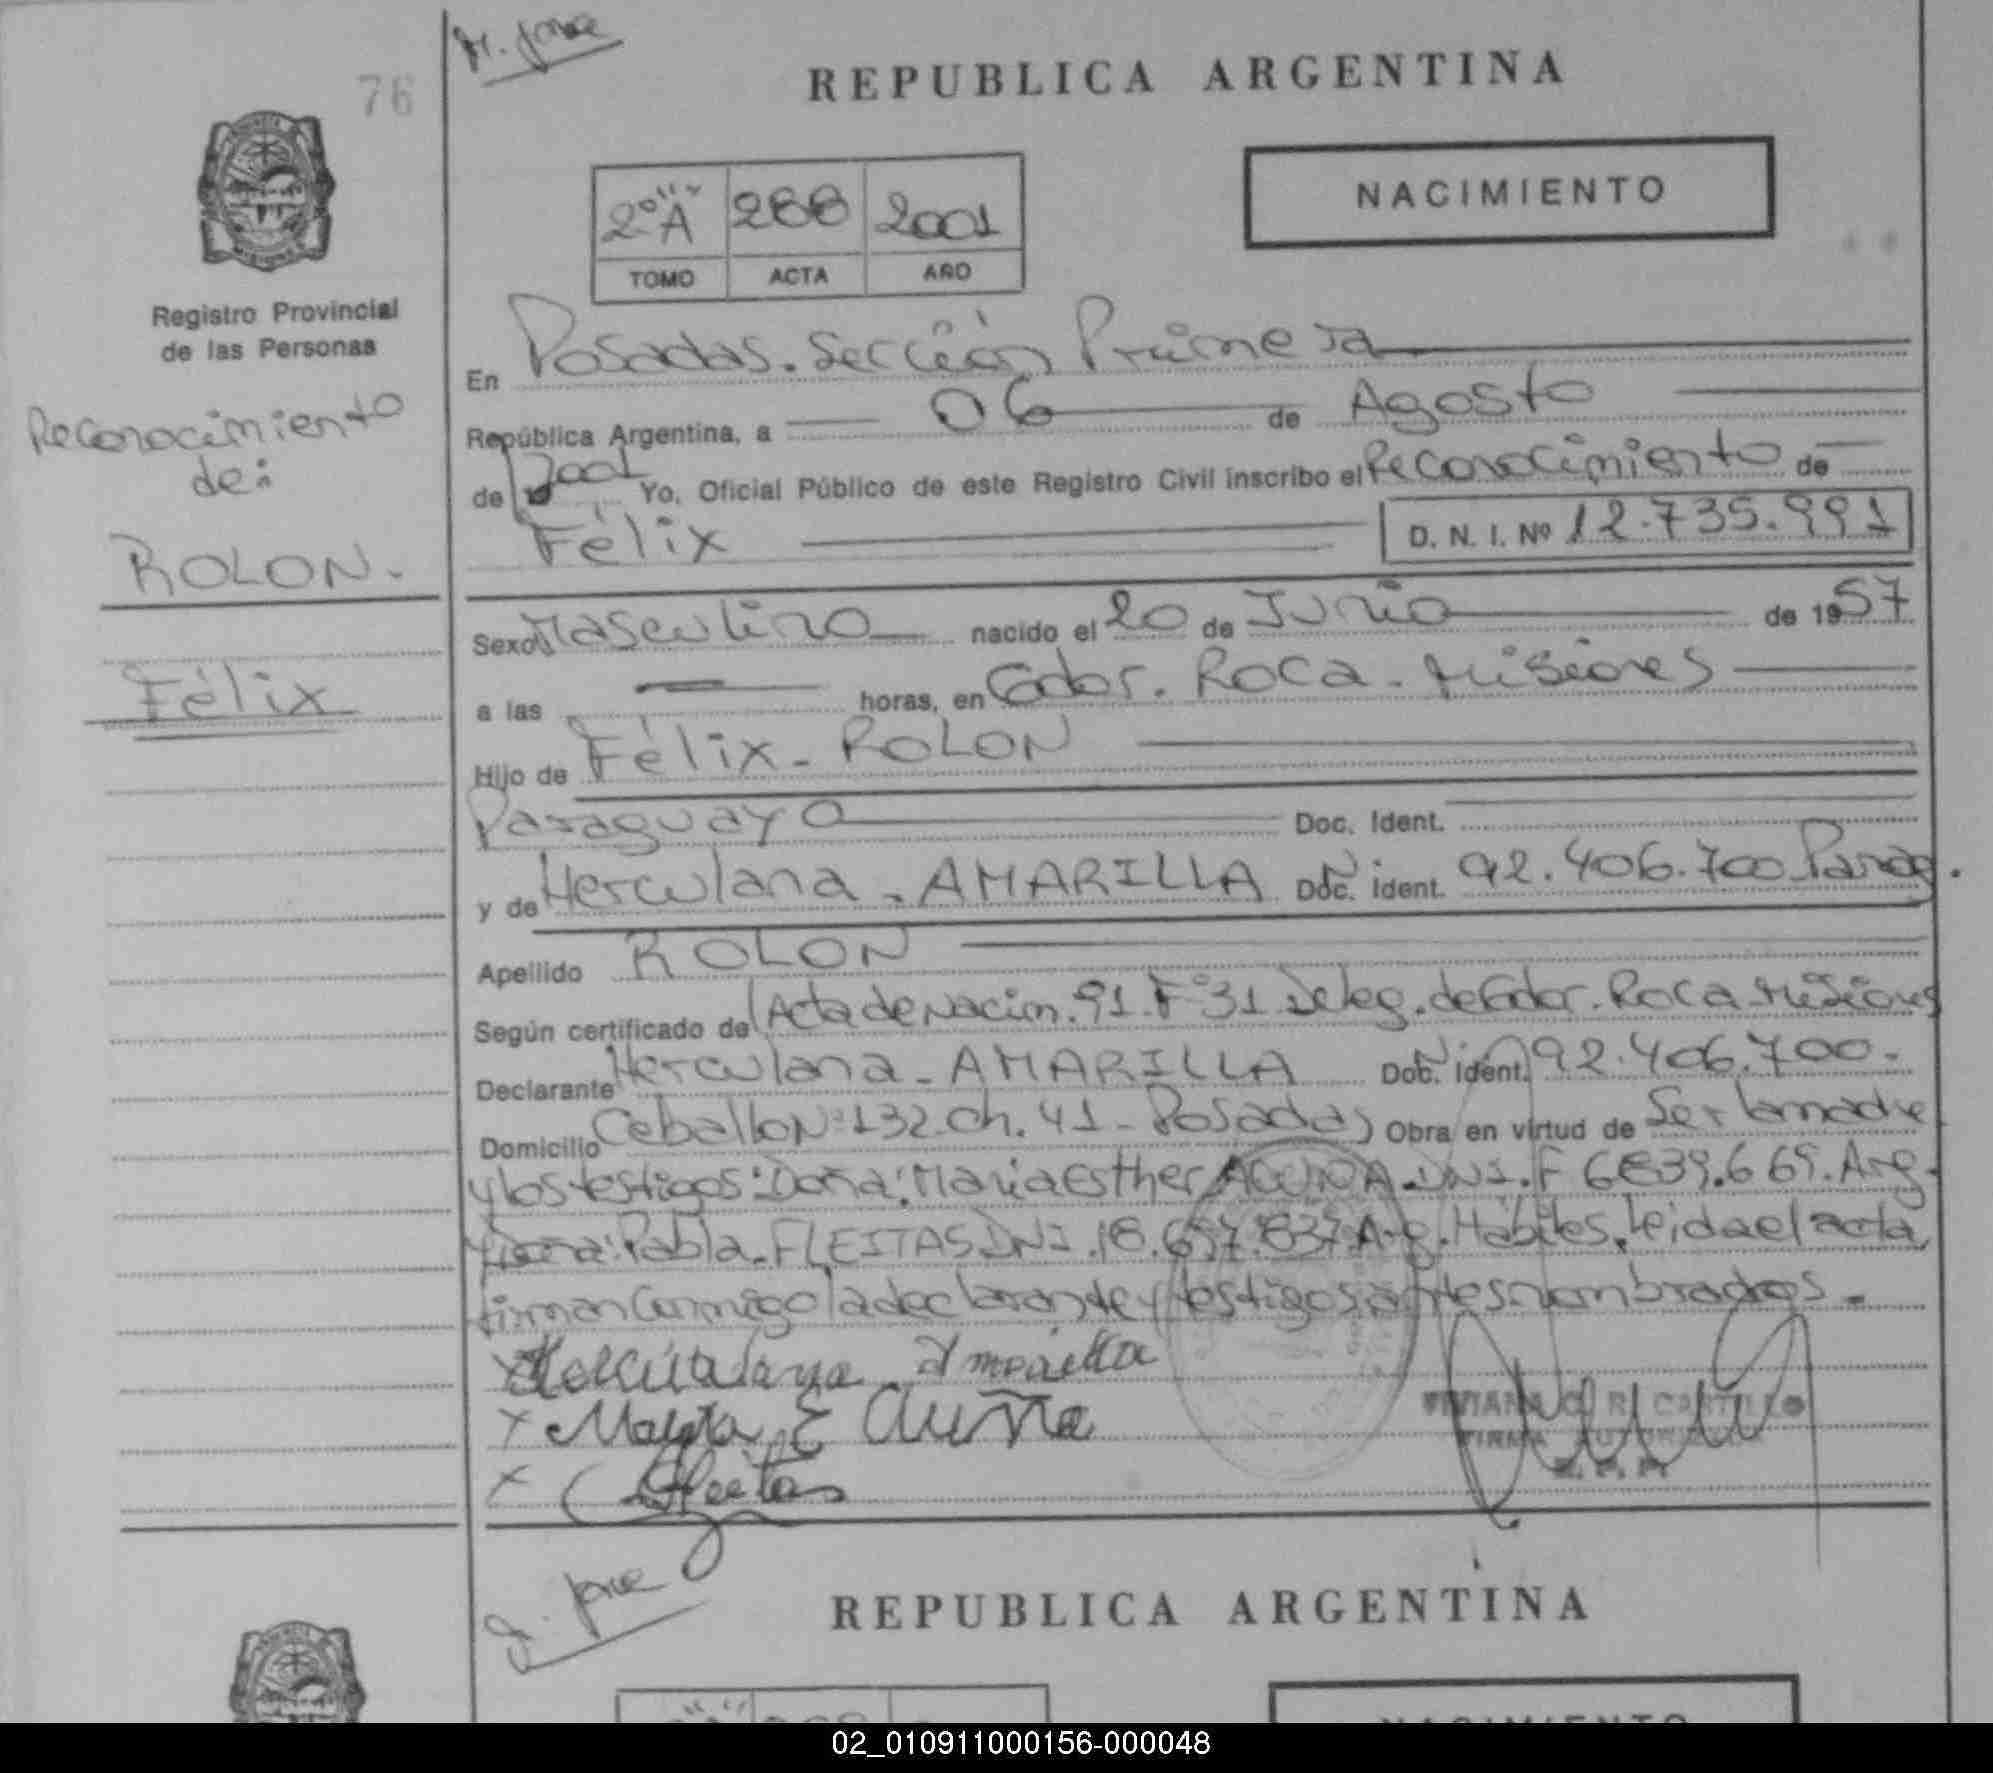 76
REPUBLICA ARGENTINA
NACIMIENTO
2º "A" 288 2001
TOMO ACTA AÑO
Registro Provincial
de las Personas
Reconocimiento
de:
ROLON.
Félix
En Posadas. Sección Primera
República Argentina, a 06 de Agosto
de 2001 Yo, Oficial Público de este Registro Civil inscribo el Reconocimiento de
Félix D. N. I. Nº 12.735.991
Sexo Masculino nacido el 20 de Junio de 1957
a las horas, en Gdor. Roca. Misiones
Hijo de Félix - ROLON
Paraguayo Doc. Ident.
y de Herculana - AMARILLA Doc. Ident. 92.406.700 Parag.
Apellido ROLON
Según certificado de Acta de Nacim. 91 Fº 31 Deleg. de Gdor. Roca Misiones
Declarante Herculana - AMARILLA Doc. Ident. 92.406.700.
Domicilio Ceballo Nº 132 ch. 41 - Posadas Obra en virtud de Ser la madre
y los testigos: Doña: Maria Esther ACUÑA. DNI. F 6839.669. Arg.
Doña: Pabla - FLEITAS DNI. 18.657.837 Arg. Hábiles, leida el acta,
firman Conmigo la declarante y testigos antes nombrados.
Amarilla
x E Acuña
x Fleitas
VIVIANA R. CASTILLO
FIRMA AUTORIZADA
REPUBLICA ARGENTINA
NACIMIENTO
02_010911000156-000048